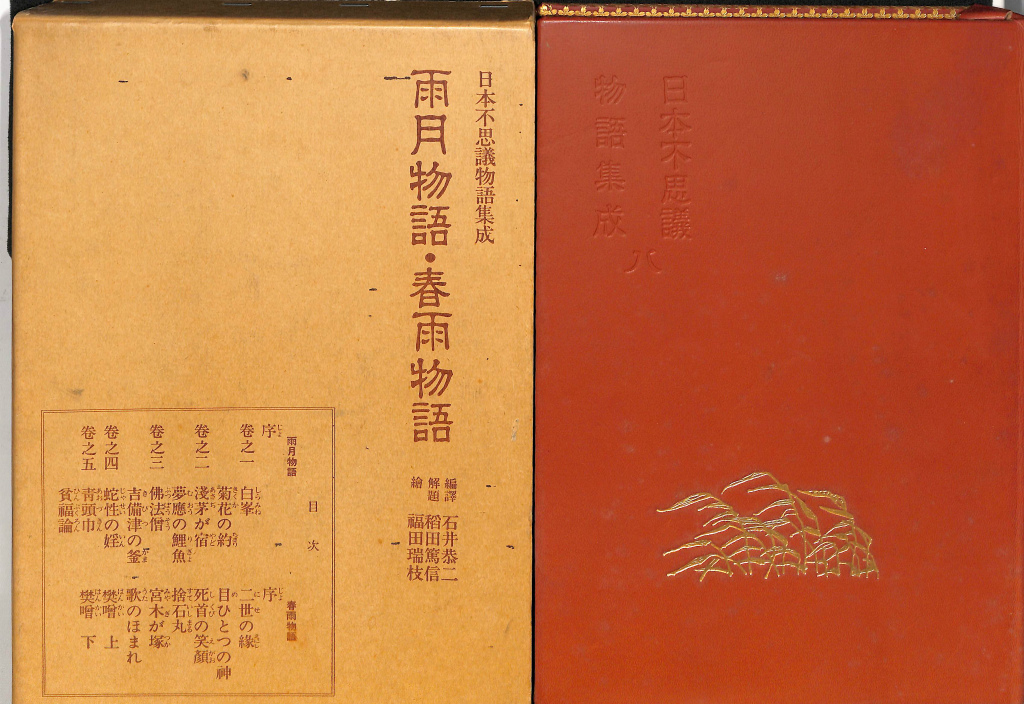 日本不思議物語集成
雨月物語・春雨物語
編譯 石井恭二
解題 稻田篤信
繪 福田瑞枝
目次
雨月物語
序
卷之一 白峯
菊花の約
卷之二 淺茅が宿
夢應の鯉魚
卷之三 佛法僧
吉備津の釜
卷之四 蛇性の婬
卷之五 靑頭巾
貧福論
春雨物語
序
二世の緣
目ひとつの神
死首の笑顏
捨石丸
宮木が塚
歌のほまれ
樊噲 上
樊噲 下
日本不思議
物語集成
八